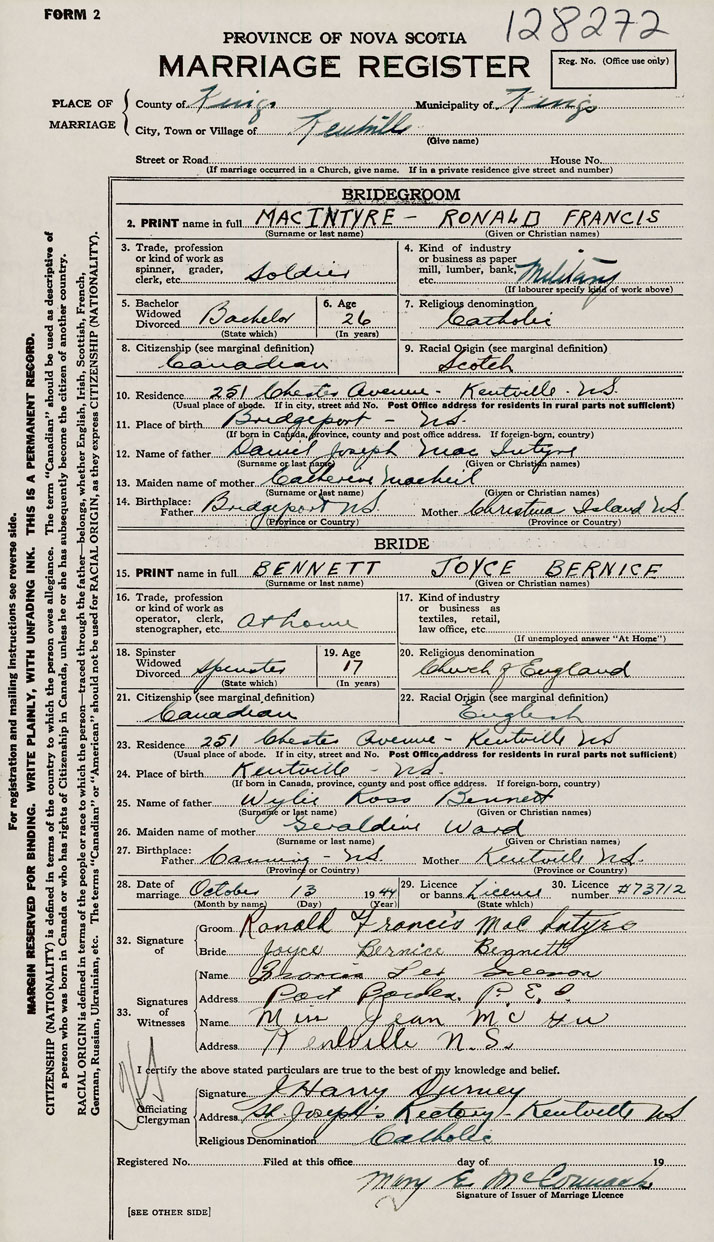 FORM 2
128272
PROVINCE OF NOVA SCOTIA
MARRIAGE REGISTER
Reg. No. (Office use only)
PLACE OF MARRIAGE
County of Kings Municipality of Kings
City, Town or Village of Kentville
(Give name)
Street or Road House No.
(If marriage occurred in a Church, give name. If in a private residence give street and number)
BRIDEGROOM
2. PRINT name in full MACINTYRE - RONALD FRANCIS
(Surname or last name) (Given or Christian names)
3. Trade, profession or kind of work as spinner, grader, clerk, etc. Soldier
4. Kind of industry or business as paper mill, lumber, bank, etc. Military
(If labourer specify kind of work above)
5. Bachelor Widowed Divorced Bachelor
(State which)
6. Age 26
(In years)
7. Religious denomination
Catholic
8. Citizenship (see marginal definition)
Canadian
9. Racial Origin (see marginal definition)
Scotch
10. Residence 251 Chester Avenue - Kentville - N.S.
(Usual place of abode. If in city, street and No. Post Office address for residents in rural parts not sufficient)
11. Place of birth Bridgeport - N.S.
(If born in Canada, province, county and post office address. If foreign-born, country)
12. Name of father Daniel Joseph Mac Intyre
(Surname or last name) (Given or Christian names)
13. Maiden name of mother Catherine
(Surname or last name) (Given or Christian names)
14. Birthplace: Father Bridgeport N.S. Mother Christmas Island N.S.
(Province or Country) (Province or Country)
BRIDE
15. PRINT name in full BENNETT JOYCE BERNICE
(Surname or last name) (Given or Christian names)
16. Trade, profession or kind of work as operator, clerk, stenographer, etc. At home
17. Kind of industry or business as textiles, retail, law office, etc.
(If unemployed answer "At Home")
18. Spinster Widowed Divorced Spinster
(State which)
19. Age 17
(In years)
20. Religious denomination
Church of England
21. Citizenship (see marginal definition)
Canadian
22. Racial Origin (see marginal definition)
English
23. Residence 251 Chester Avenue - Kentville N.S.
(Usual place of abode. If in city, street and No. Post Office address for residents in rural parts not sufficient)
24. Place of birth Kentville - N.S.
(If born in Canada, province, county and post office address. If foreign-born, country)
25. Name of father Wylie Ross Bennett
(Surname or last name) (Given or Christian names)
26. Maiden name of mother Geraldine Ward
(Surname or last name) (Given or Christian names)
27. Birthplace: Father Canning - N.S. Mother Kentville N.S.
(Province or Country) (Province or Country)
28. Date of marriage October 13 1944
(Month by name) (Day) (Year)
29. Licence or banns Licence
(State which)
30. Licence number #73712
32. Signature of
Groom Ronald Francis Mac Intyre
Bride Joyce Bernice Bennett
33. Signatures of Witnesses
Name
Address Port Borden, P.E.I.
Name Miss Jean
Address Kentville N.S.
I certify the above stated particulars are true to the best of my knowledge and belief.
Officiating Clergyman
Signature J Harry Durney
Address St. Joseph's Rectory - Kentville NS
Religious Denomination Catholic
Registered No. Filed at this office day of 19
Mary E. McCormack
Signature of Issuer of Marriage Licence
[SEE OTHER SIDE]
For registration and mailing instructions see reverse side.
MARGIN RESERVED FOR BINDING. WRITE PLAINLY, WITH UNFADING INK. THIS IS A PERMANENT RECORD.
CITIZENSHIP (NATIONALITY) is defined in terms of the country to which the person owes allegiance. The term "Canadian" should be used as descriptive of
a person who was born in Canada or who has rights of Citizenship in Canada, unless he or she has subsequently become the citizen of another country.
RACIAL ORIGIN is defined in terms of the people or race to which the person—traced through the father—belongs, whether English, Irish, Scottish, French,
German, Russian, Ukrainian, etc. The terms "Canadian" or "American" should not be used for RACIAL ORIGIN, as they express CITIZENSHIP (NATIONALITY).